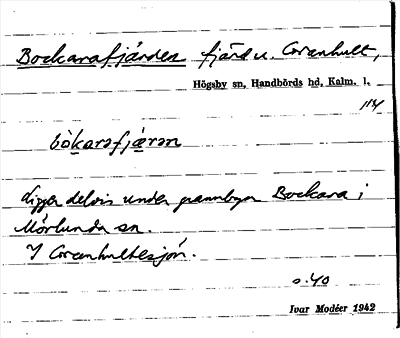 Bockarafjärden fjärd u. Coranhult,
Högsby sn, Handbörds hd, Kalm. l.
114
bo̱karafjæ̱ran
Ligger delvis under grannbyn Bockara i
Mörlunda sn.
I Coranhultesjön.
s. 40
Ivar Modéer 1942